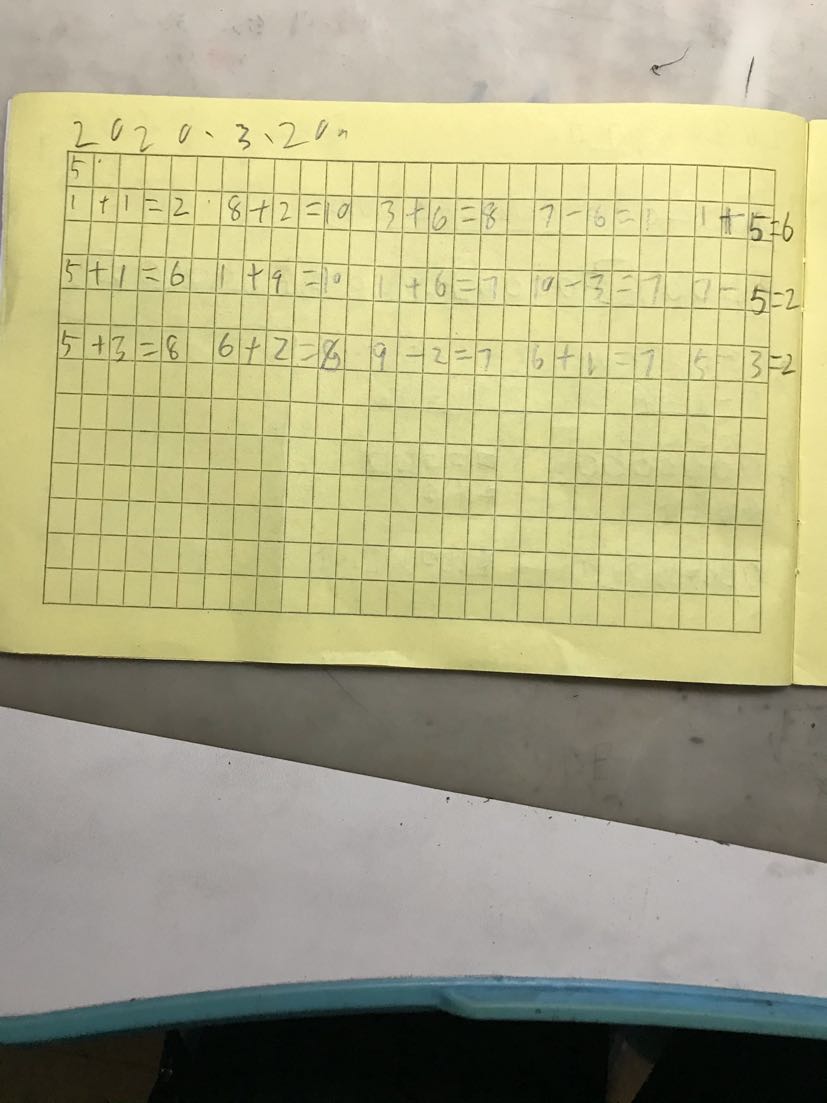 2020、3、20。
5.
1+1=2 8+2=10 3+6=8 7-6=1 1+5=6
5+1=6 1+9=10 1+6=7 10-3=7 7-5=2
5+3=8 6+2=8 9-2=7 6+1=7 5-3=2